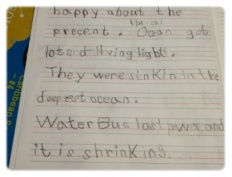 happy about the
present. Ozan got
lots of living light.
They were sinKIn in the
deepest ocean.
Water Bus last and
it is shrinKing.